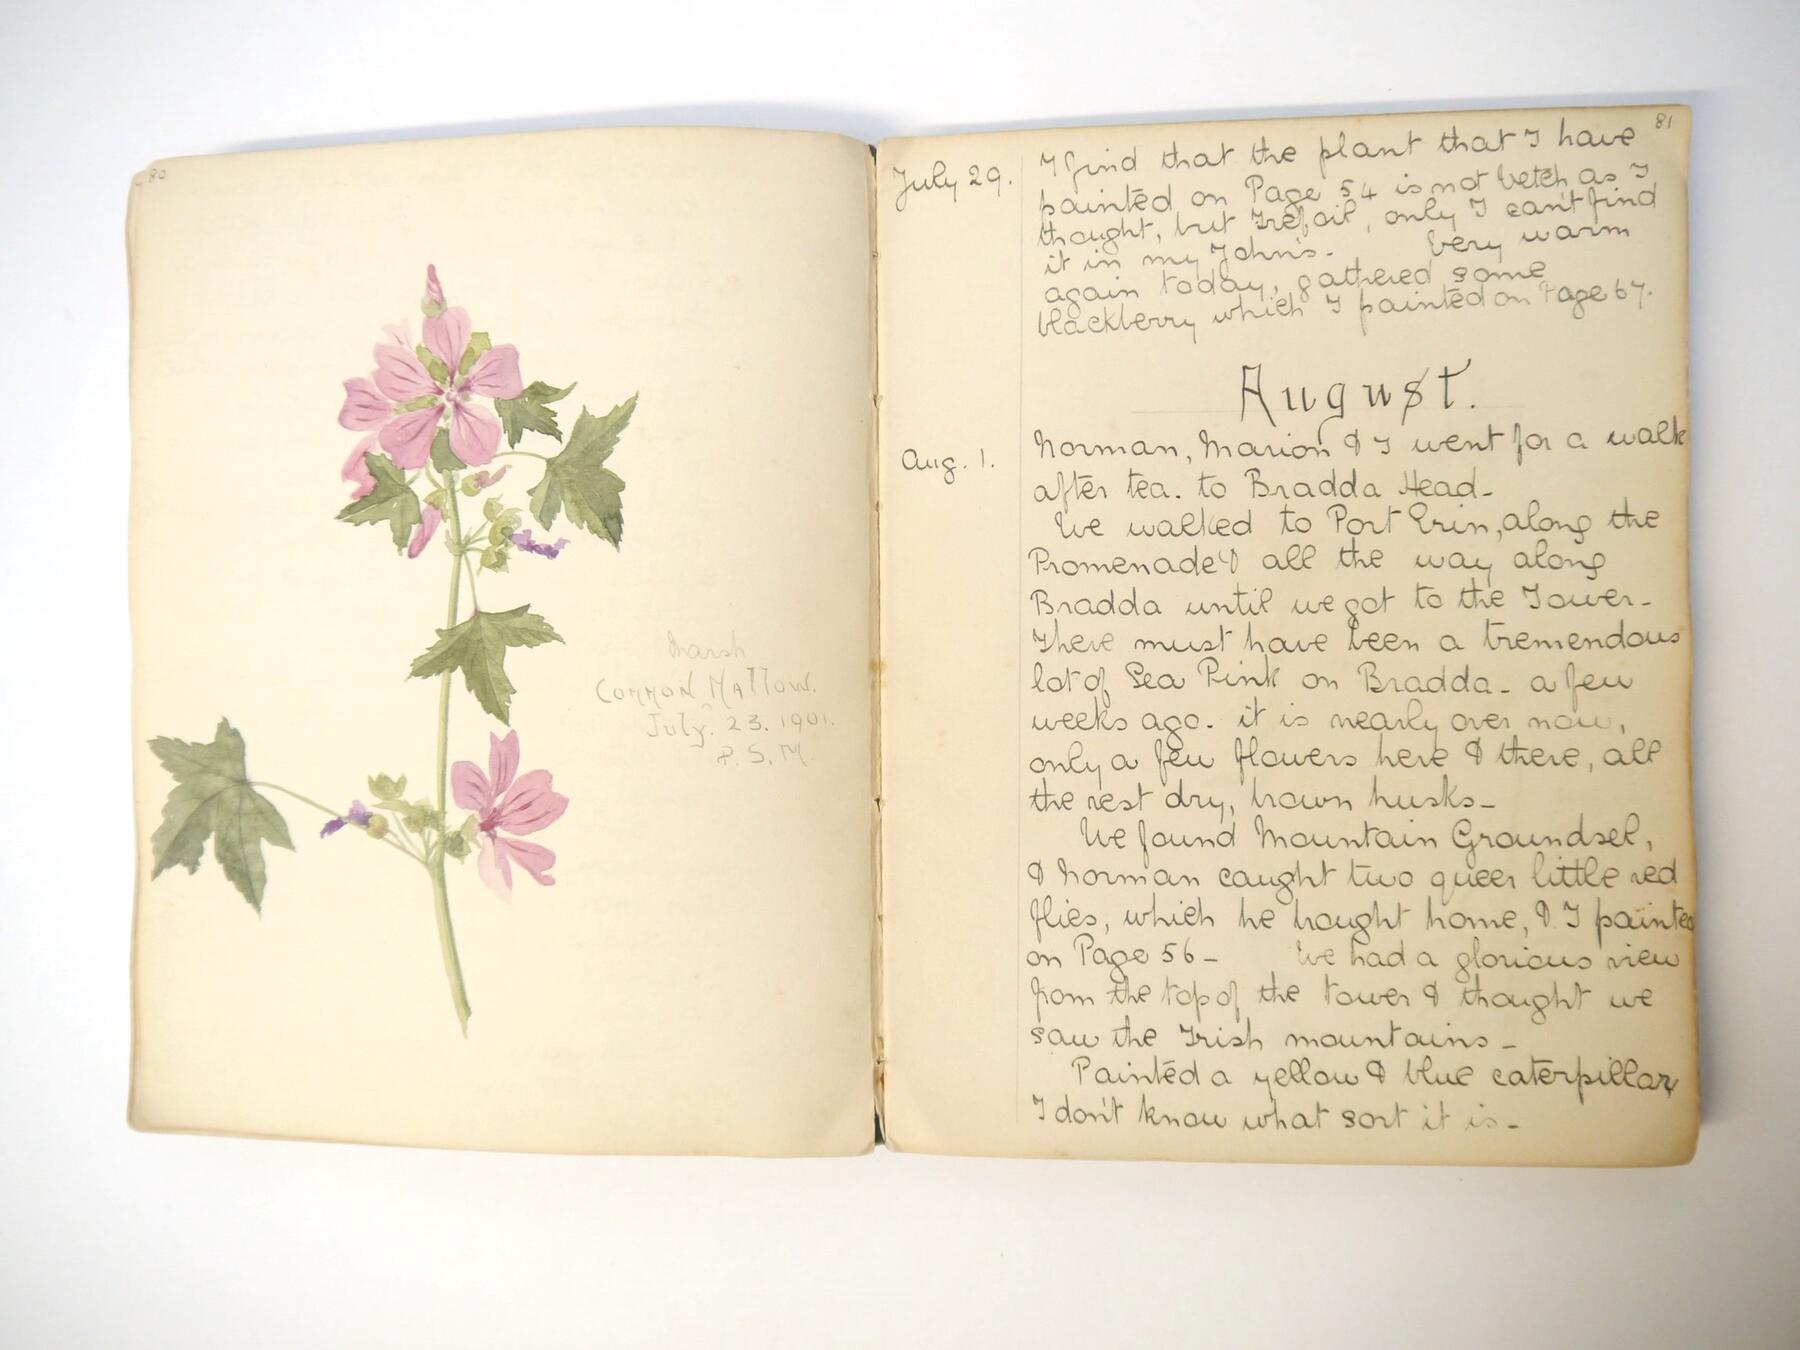 80
Marsh
Common Mallow.
July. 23. 1901.
P. S. M.
81
July 29.
I find that the plant that I have
painted on Page 54 is not vetch as I
thought, but Trefoil, only I can't find
it in my John's. Very warm
again today, gathered some
blackberry which I painted on Page 67.
August.
Aug. 1.
Norman, Marion & I went for a walk
after tea. to Bradda Head-
We walked to Port Erin, along the
Promenade & all the way along
Bradda until we got to the Tower-
There must have been a tremendous
lot of Sea Pink on Bradda- a few
weeks ago. it is nearly over now,
only a few flowers here & there, all
the rest dry, brown husks-
We found Mountain Groundsel,
& Norman caught two queer little red
flies, which he bought home, & I painted
on Page 56- We had a glorious view
from the top of the tower & thought we
saw the Irish mountains-
Painted a yellow & blue caterpillar,
I don't know what sort it is-